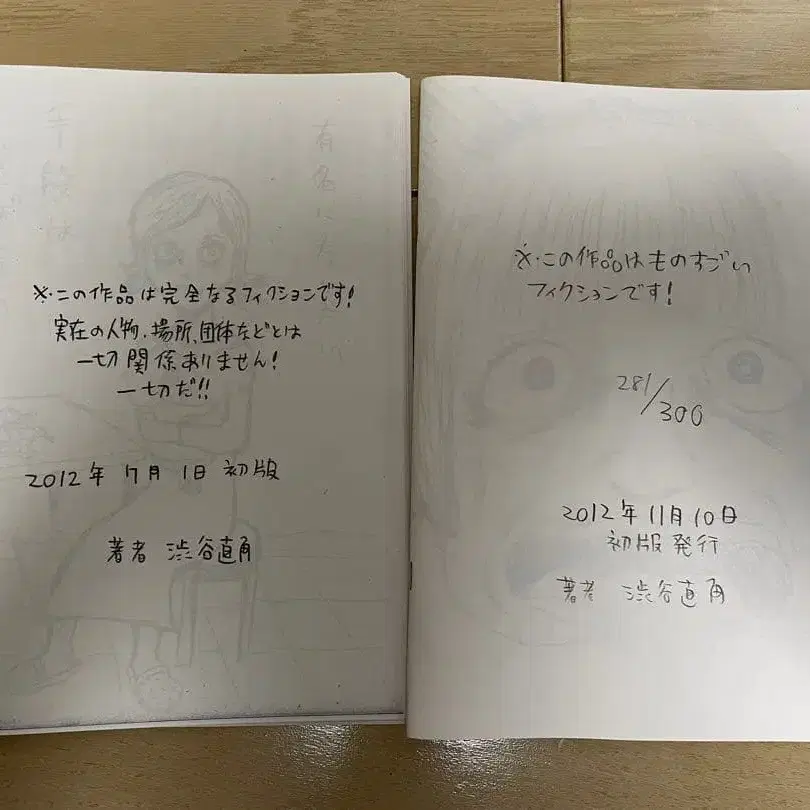 ※・この作品は完全なるフィクションです!
実在の人物、場所、団体などとは
一切関係ありません!
一切だ!!
2012年 7月 1日 初版
著者 渋谷直角
※・この作品はものすごい
フィクションです!
281/300
2012年 11月 10日
初版発行
著者 渋谷直角